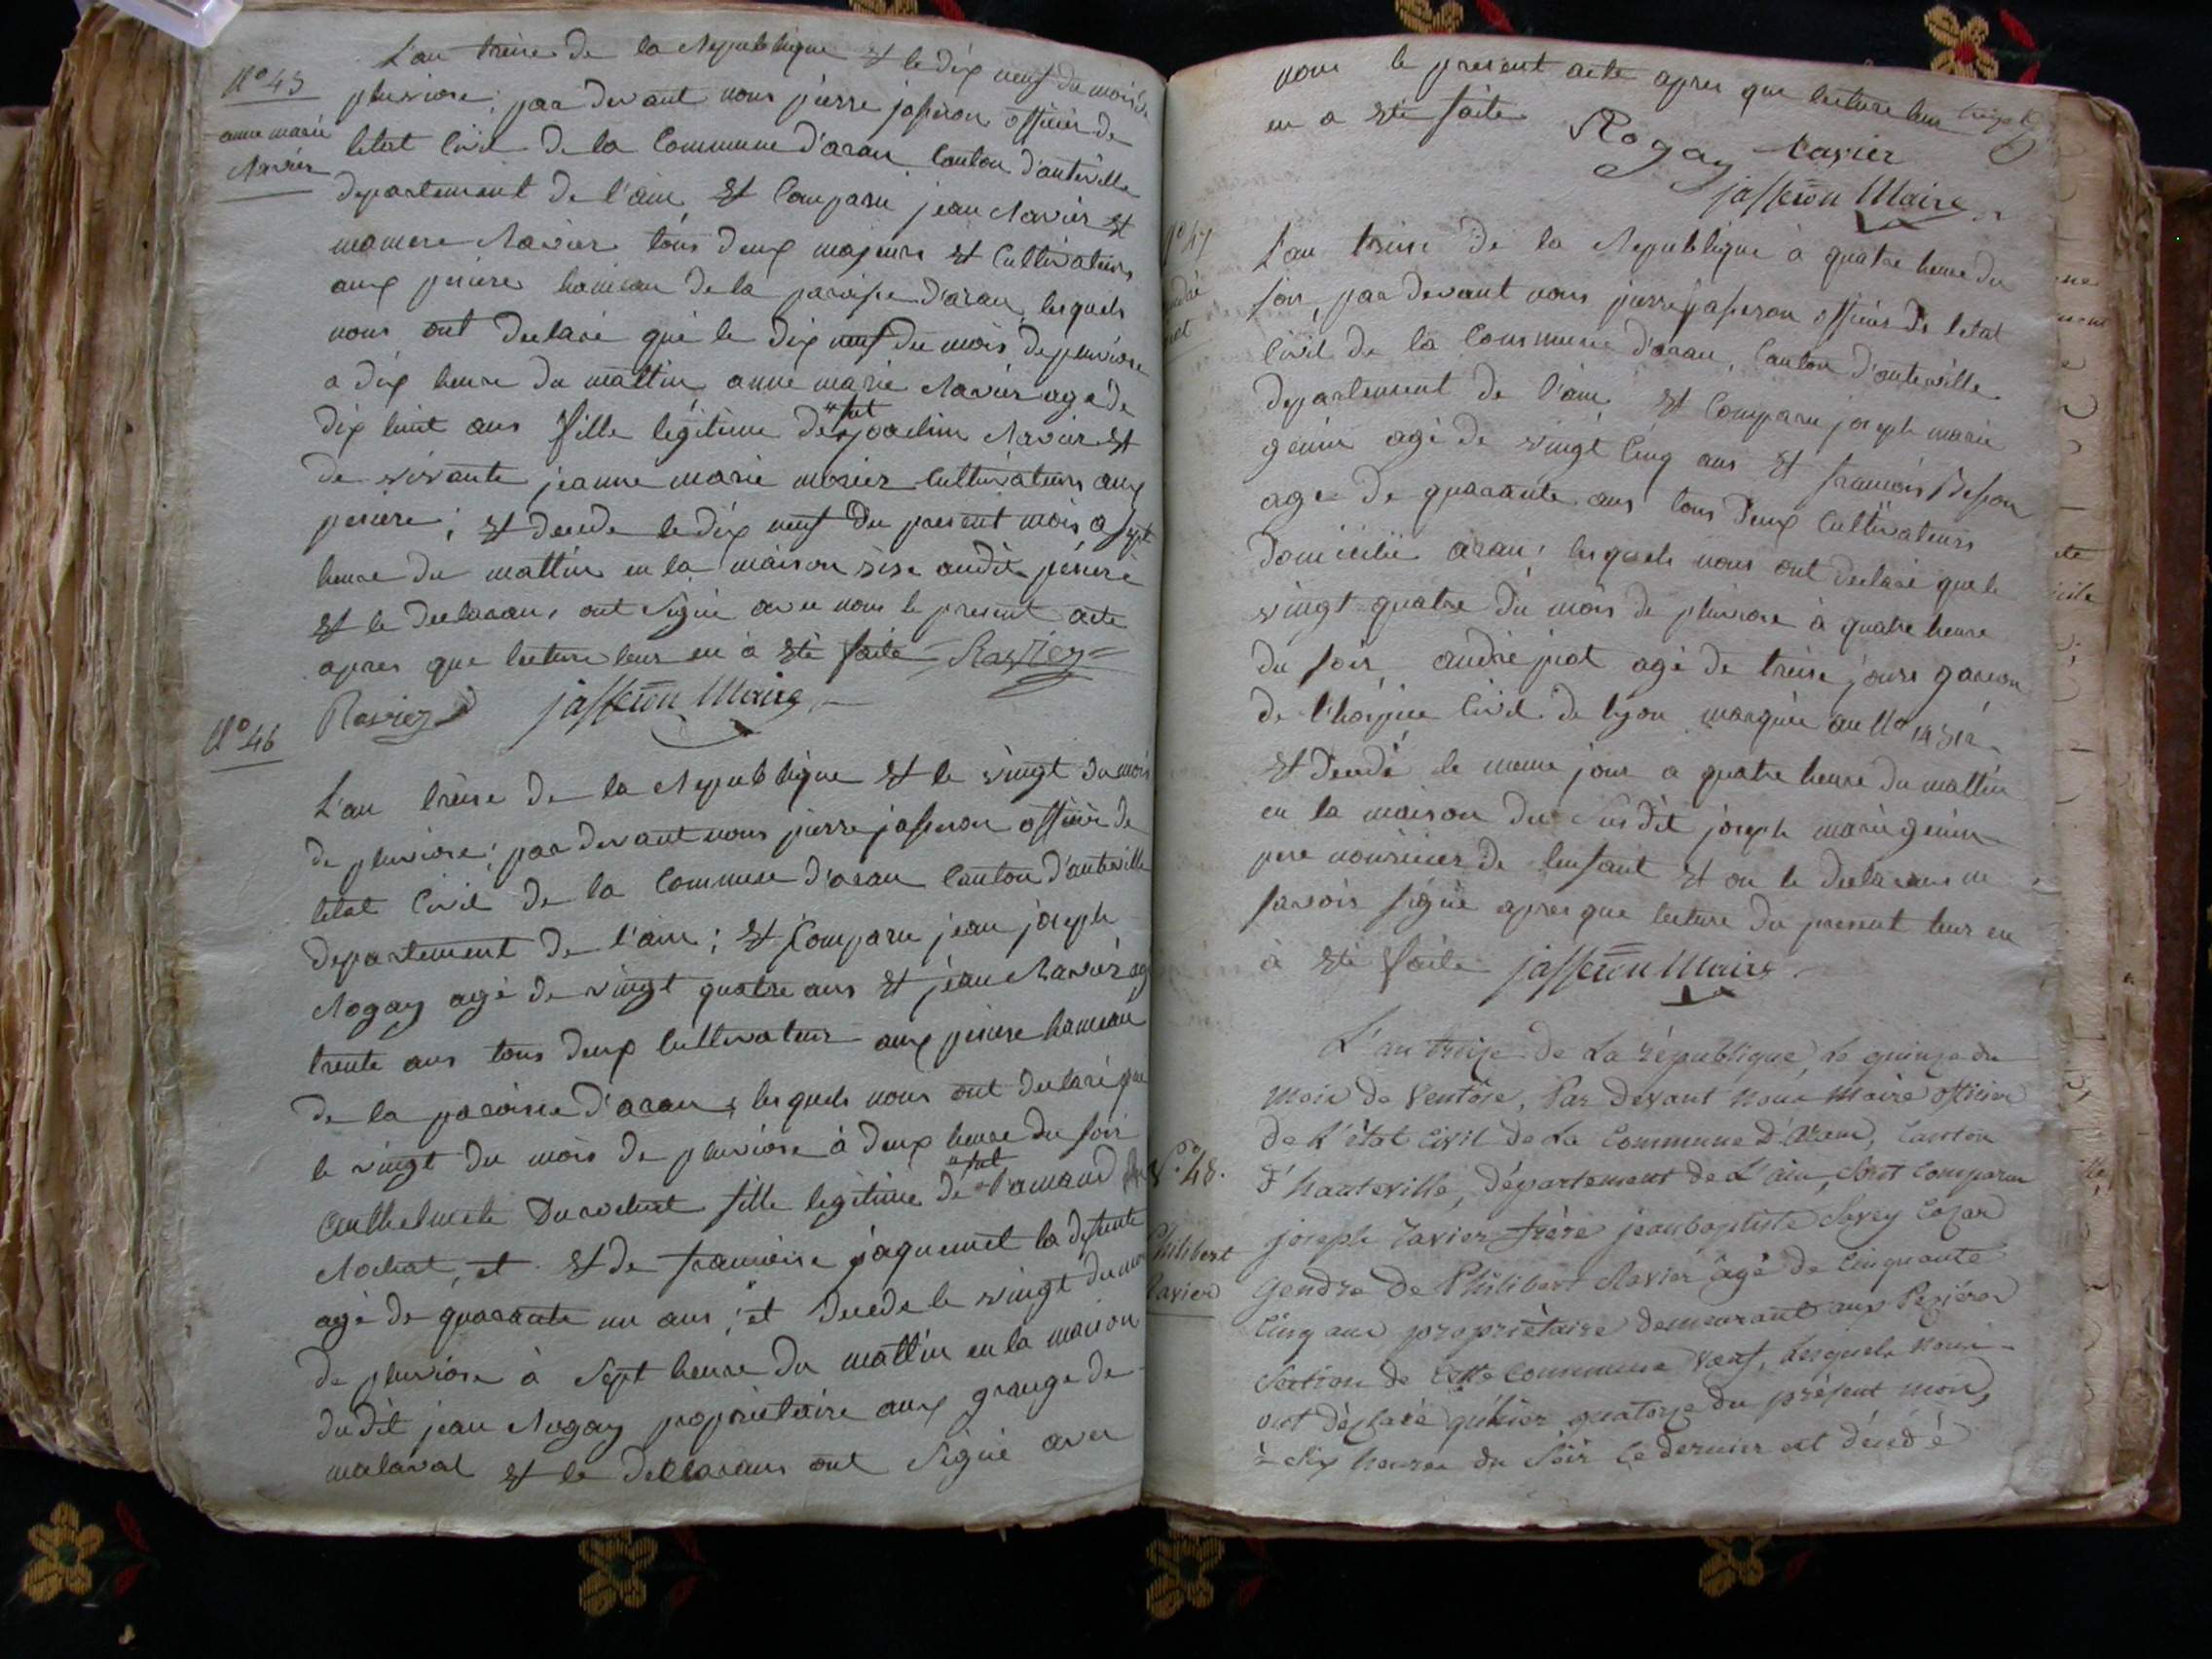 L'an treise de la Republique et le dix neuf du mois de
N° 45
pluviose; par devant nous pierre jasseron officier de
anne marie
Ravier
letat Civil de la Commune d'aran Canton d'auteville
departement de l'ain et Comparu jean Ravier et
Ravier tous deux majeurs et Cultivateurs
aux periere hameau de la paroisse d'aran lesquels
nous ont declaré que le dix neuf du mois de pluviose
a dix heure du mattin anne marie Ravier agé de
dix huit ans fille légitime de "fut joachim Ravier et
de vivante jeanne marie Cultivateurs aux
periere; et decede le dix neuf du present mois a sept
heure du mattin en la maison sise audit periere
et le declarans ont Signé avec nous le present acte
apres que lecture leur en à été faite Ravier
Ravier jasseron Maire
N° 46
L'an treise de la Republique et le vingt du mois
de pluviose; par devant nous pierre jasseron officier de
letat Civil de la Commune d'aran Canton d'auteville
departement de l'ain; et Comparu jean joseph
Rogay agé de vingt quatre ans et jean Ravier ag
trente ans tous deux Cultivateur aux periere hameau
de la paroisse d'aran; lesquels nous ont declaré que
le vingt du mois de pluviose à deux heure du soir
fille legitime de "fut
Rochat, et et de francoise jaquemet la defunte
agé de quarante un ans; et decede le vingt du mois
de pluviose à Sept heure du mattin en la maison
dudit jean Rogay proprietaire aux grange de
malaval et le declarans ont Signé avec
nous le present acte apres que lecture leur
en a été faite Rogay Ravier
jasseron Maire
L'an treise de la Republique à quatre heure du
soir, par devant nous pierre jasseron officier de letat
Civil de la Commune d'aran, Canton d'auteville
departement de l'ain et Comparu joseph marie
genin agé de vingt Cinq ans et francois Besson
age de quarante ans tous deux Cultivateurs
domicilié aran; lesquels nous ont declaré que le
vingt quatre du mois de pluviose à quatre heure
du soir, andré agé de treise jours garcon
de l'hospice Civil de lyon marquée au N°
et decedé le meme jour a quatre heure du mattin
en la maison du Susdit joseph marie genin
pere nouricier de lenfant et on le declarans ne
savoir signé apres que lecture du present leur en
à été faite jasseron Maire
L'an treize de La république, Le quinze du
Mois de Ventôse, Par devant Nous Maire officier
de L'état Civil de La Commune D'Aran, Canton
N°. 48.
d'hauteville, département de L'ain, Sont Comparus
joseph Ravier frère jean baptiste Savey
Philibert
Ravier
Gendre de Philibert Ravier âgé de Cinquante
Cinq ans propriétaire demeurant aux Perières
Section de Cette Commune Veuf, Lesquels Nous
ont déclaré qu'hier quatorze du présent mois,
à dix heures du Soir Ce dernier est décédé